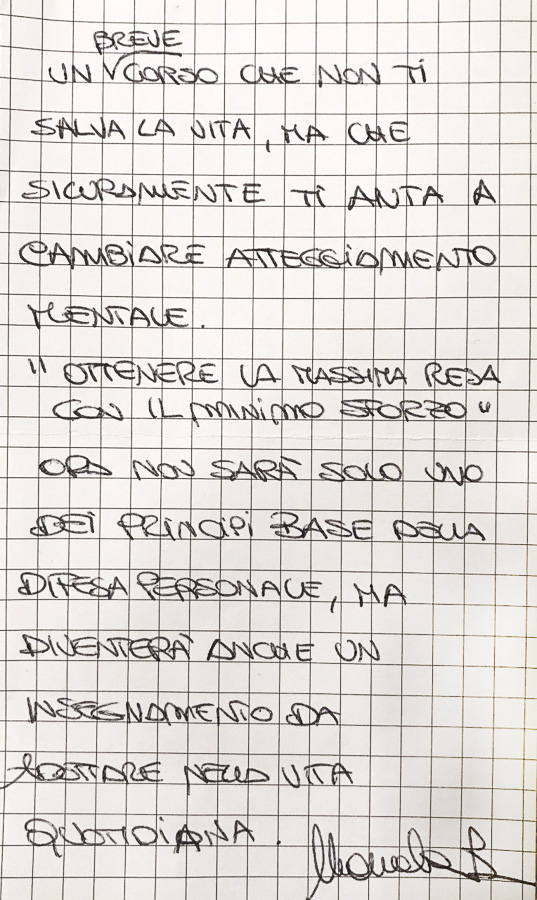 BREVE
UN √CORSO CHE NON TI
SALVA LA VITA, MA CHE
SICURAMENTE TI AIUTA A
CAMBIARE ATTEGGIAMENTO
MENTALE.
"OTTENERE LA MASSIMA RESA
CON IL MINIMO SFORZO"
ORA NON SARÀ SOLO UNO
DEI PRINCIPI BASE DELLA
DIFESA PERSONALE, MA
DIVENTERÀ ANCHE UN
INSEGNAMENTO DA
ADOTTARE NELLA VITA
QUOTIDIANA.
Manuela B